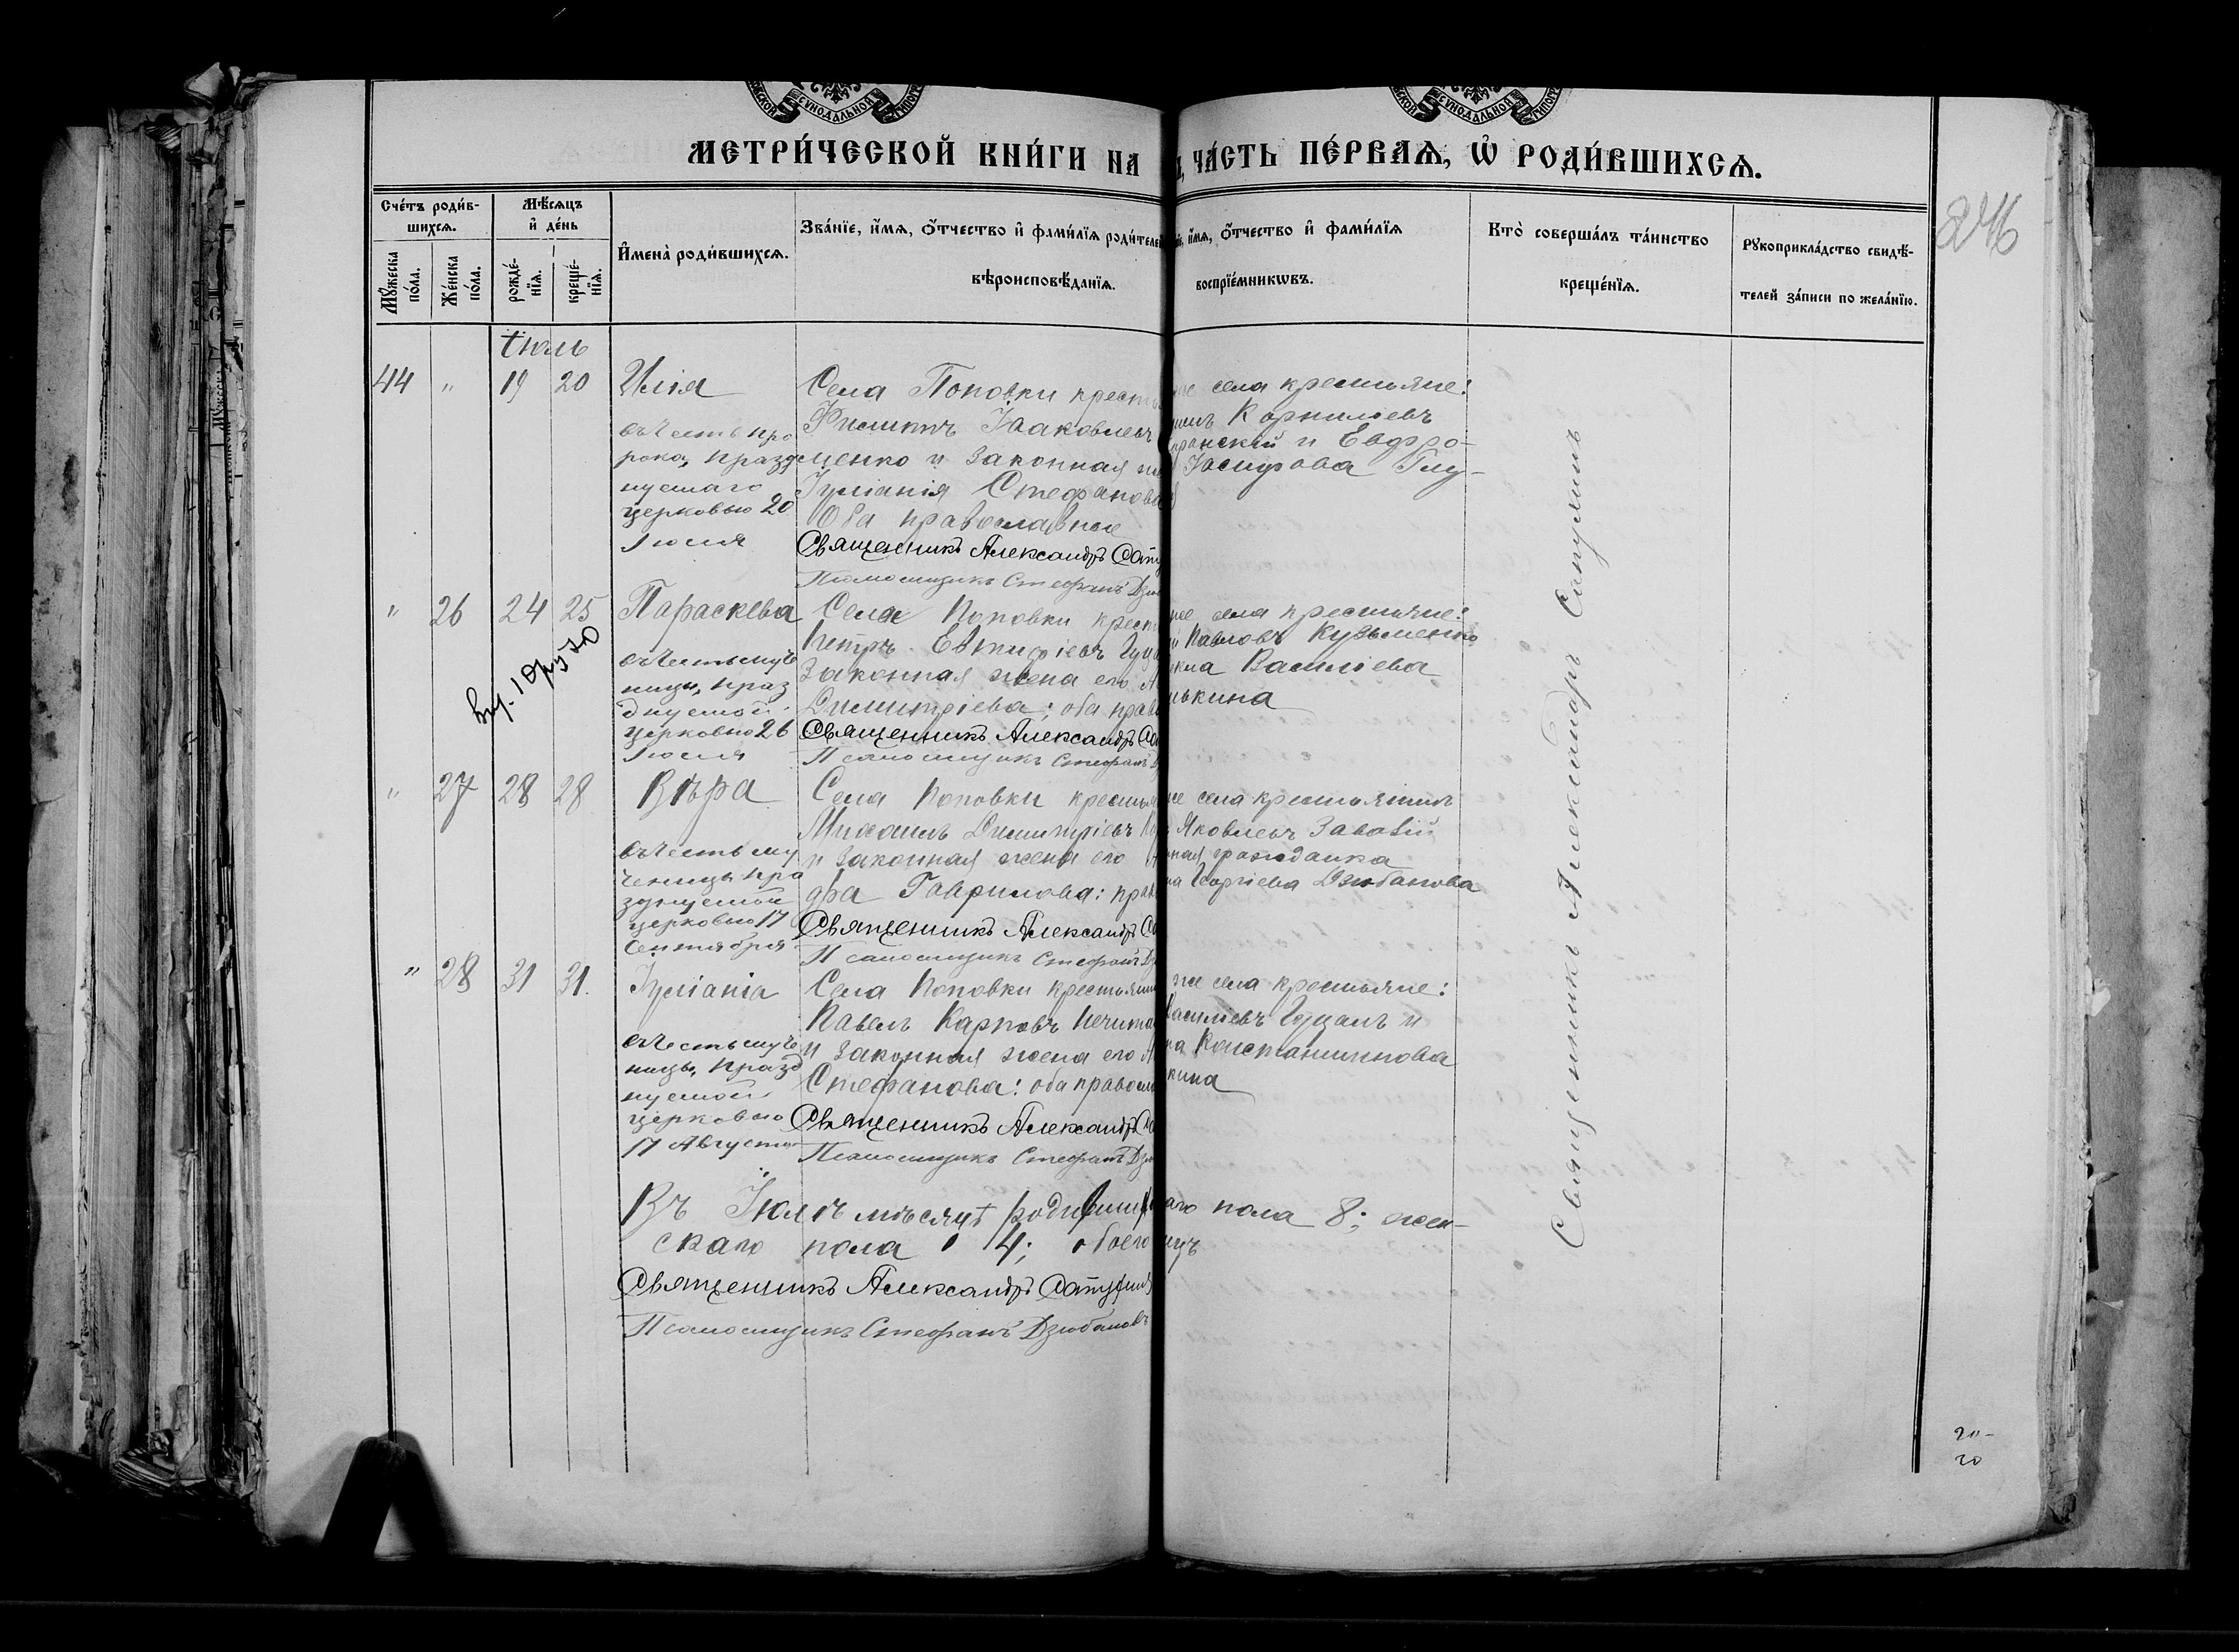 СѴНОДАЛЬНОЙ
СѴНОДАЛЬНОЙ
МЕТРИ́ЧЕСКОЙ КНИ́ГИ НА ЧА́СТЬ ПЕ́РВАѦ, Ѡ҆ РОДИ́ВШИХСѦ.
246
Сче́тъ роди́в-
шихсѧ.
Мꙋ́жеска по́ла.
Же́нска по́ла.
Мѣ́сѧцъ и҆ де́нь
рожде́-
нїѧ.
креще́-
нїѧ.
И҆мена̀ роди́вшихсѧ.
Зва́нїе, и҆́мѧ, ѻ҆́тчество и҆ фами́лїѧ роди́теле
вѣроисповѣ́данїѧ.
и҆́мѧ, ѻ҆́тчество и҆ фами́лїѧ
воспрїе́мникѡвъ.
Кто̀ соверша́лъ та́инство
креще́нїѧ.
Рꙋкоприкла́дство свидѣ́-
телей за́писи по жела́нїю.
Іюль
44 " 19 20 Илія
въ честь про
рока, празд
нуемаго
церковью 20
Іюля
Села Поповки кресть
Филиппъ Іаковлевъ
менко и законная
Іуліанія Стефанова
Оба православные
Священникъ Александръ Сату
Псаломщикъ Стефанъ Дзю
же села крестьяне:
Корниліевъ
и Евфро-
Іосифова Глу-
" 26 24 25 Параскева
въ честь муче
ницы, праз
днуемой
церковью 26
Іюля
Села Поповки крест
Петръ Евтихіевъ Гуца
законная жена его
Димитріева; оба прав
Священникъ Александръ Са
Псаломщикъ Стефанъ
же села крестьяне:
Павловъ Кузьменко
Василіева
нькина
" 27 28 28 Вѣра
въ честь му
ченицы пра
зднуемой
церковью 17
Сентября
Села Поповки крестья
Михаилъ Димитріевъ
и законная жена его
Гаврилова: прав
Священникъ Александръ Са
Псаломщикъ Стефанъ Дз
же села крестьянинъ
Яковлевъ Завовій
ная гражданка
Георгіева Дзюбанова
" 28 31 31. Іуліанія
въ честь муче
ницы, празд
нуемой
церковью
17 Августа
Села Поповки крестьянин
Павелъ Карповъ Нечита
и законная жена его
Стефанова: оба правосл
Священникъ Александръ Са
Псаломщикъ Стефанъ Дзю
же села крестьяне:
Василіевъ Гуцалъ и
на Константинова
кина
Священникъ Александръ Сатулинъ
Въ Іюлѣ мѣсяцѣ родивши аго пола 8; жен-
скаго пола 4; обоего
Священникъ Александръ Сатулинъ
Псаломщикъ Стефанъ Дзюбановъ